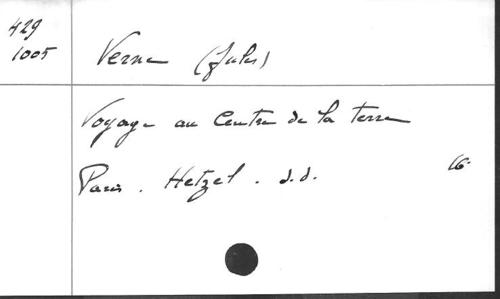 429
1005
Verne (Jules)
Voyage au Centre de la terre
Paris. Hetzel. s.d.
16°